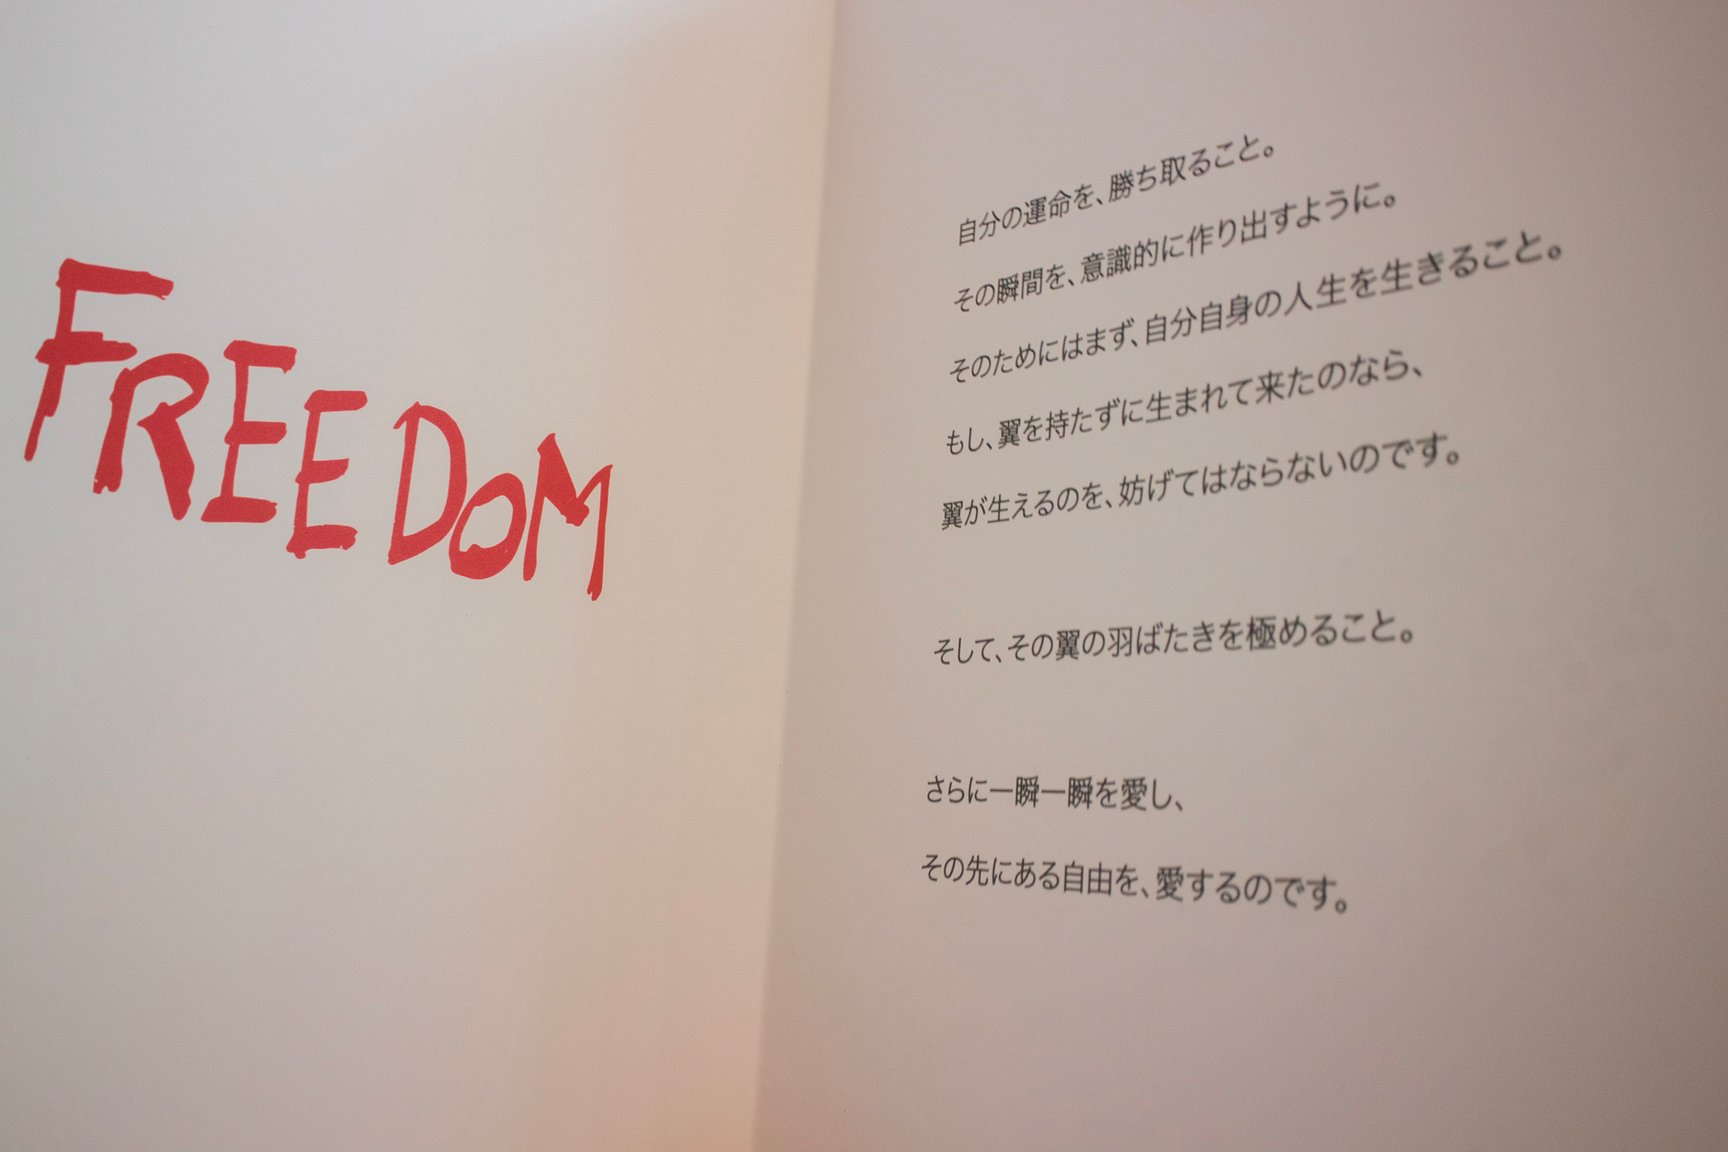 FREEDOM
自分の運命を、勝ち取ること。
その瞬間を、意識的に作り出すように。
そのためにはまず、自分自身の人生を生きること。
もし、翼を持たずに生まれて来たのなら、
翼が生えるのを、妨げてはならないのです。
そして、その翼の羽ばたきを極めること。
さらに一瞬一瞬を愛し、
その先にある自由を、愛するのです。